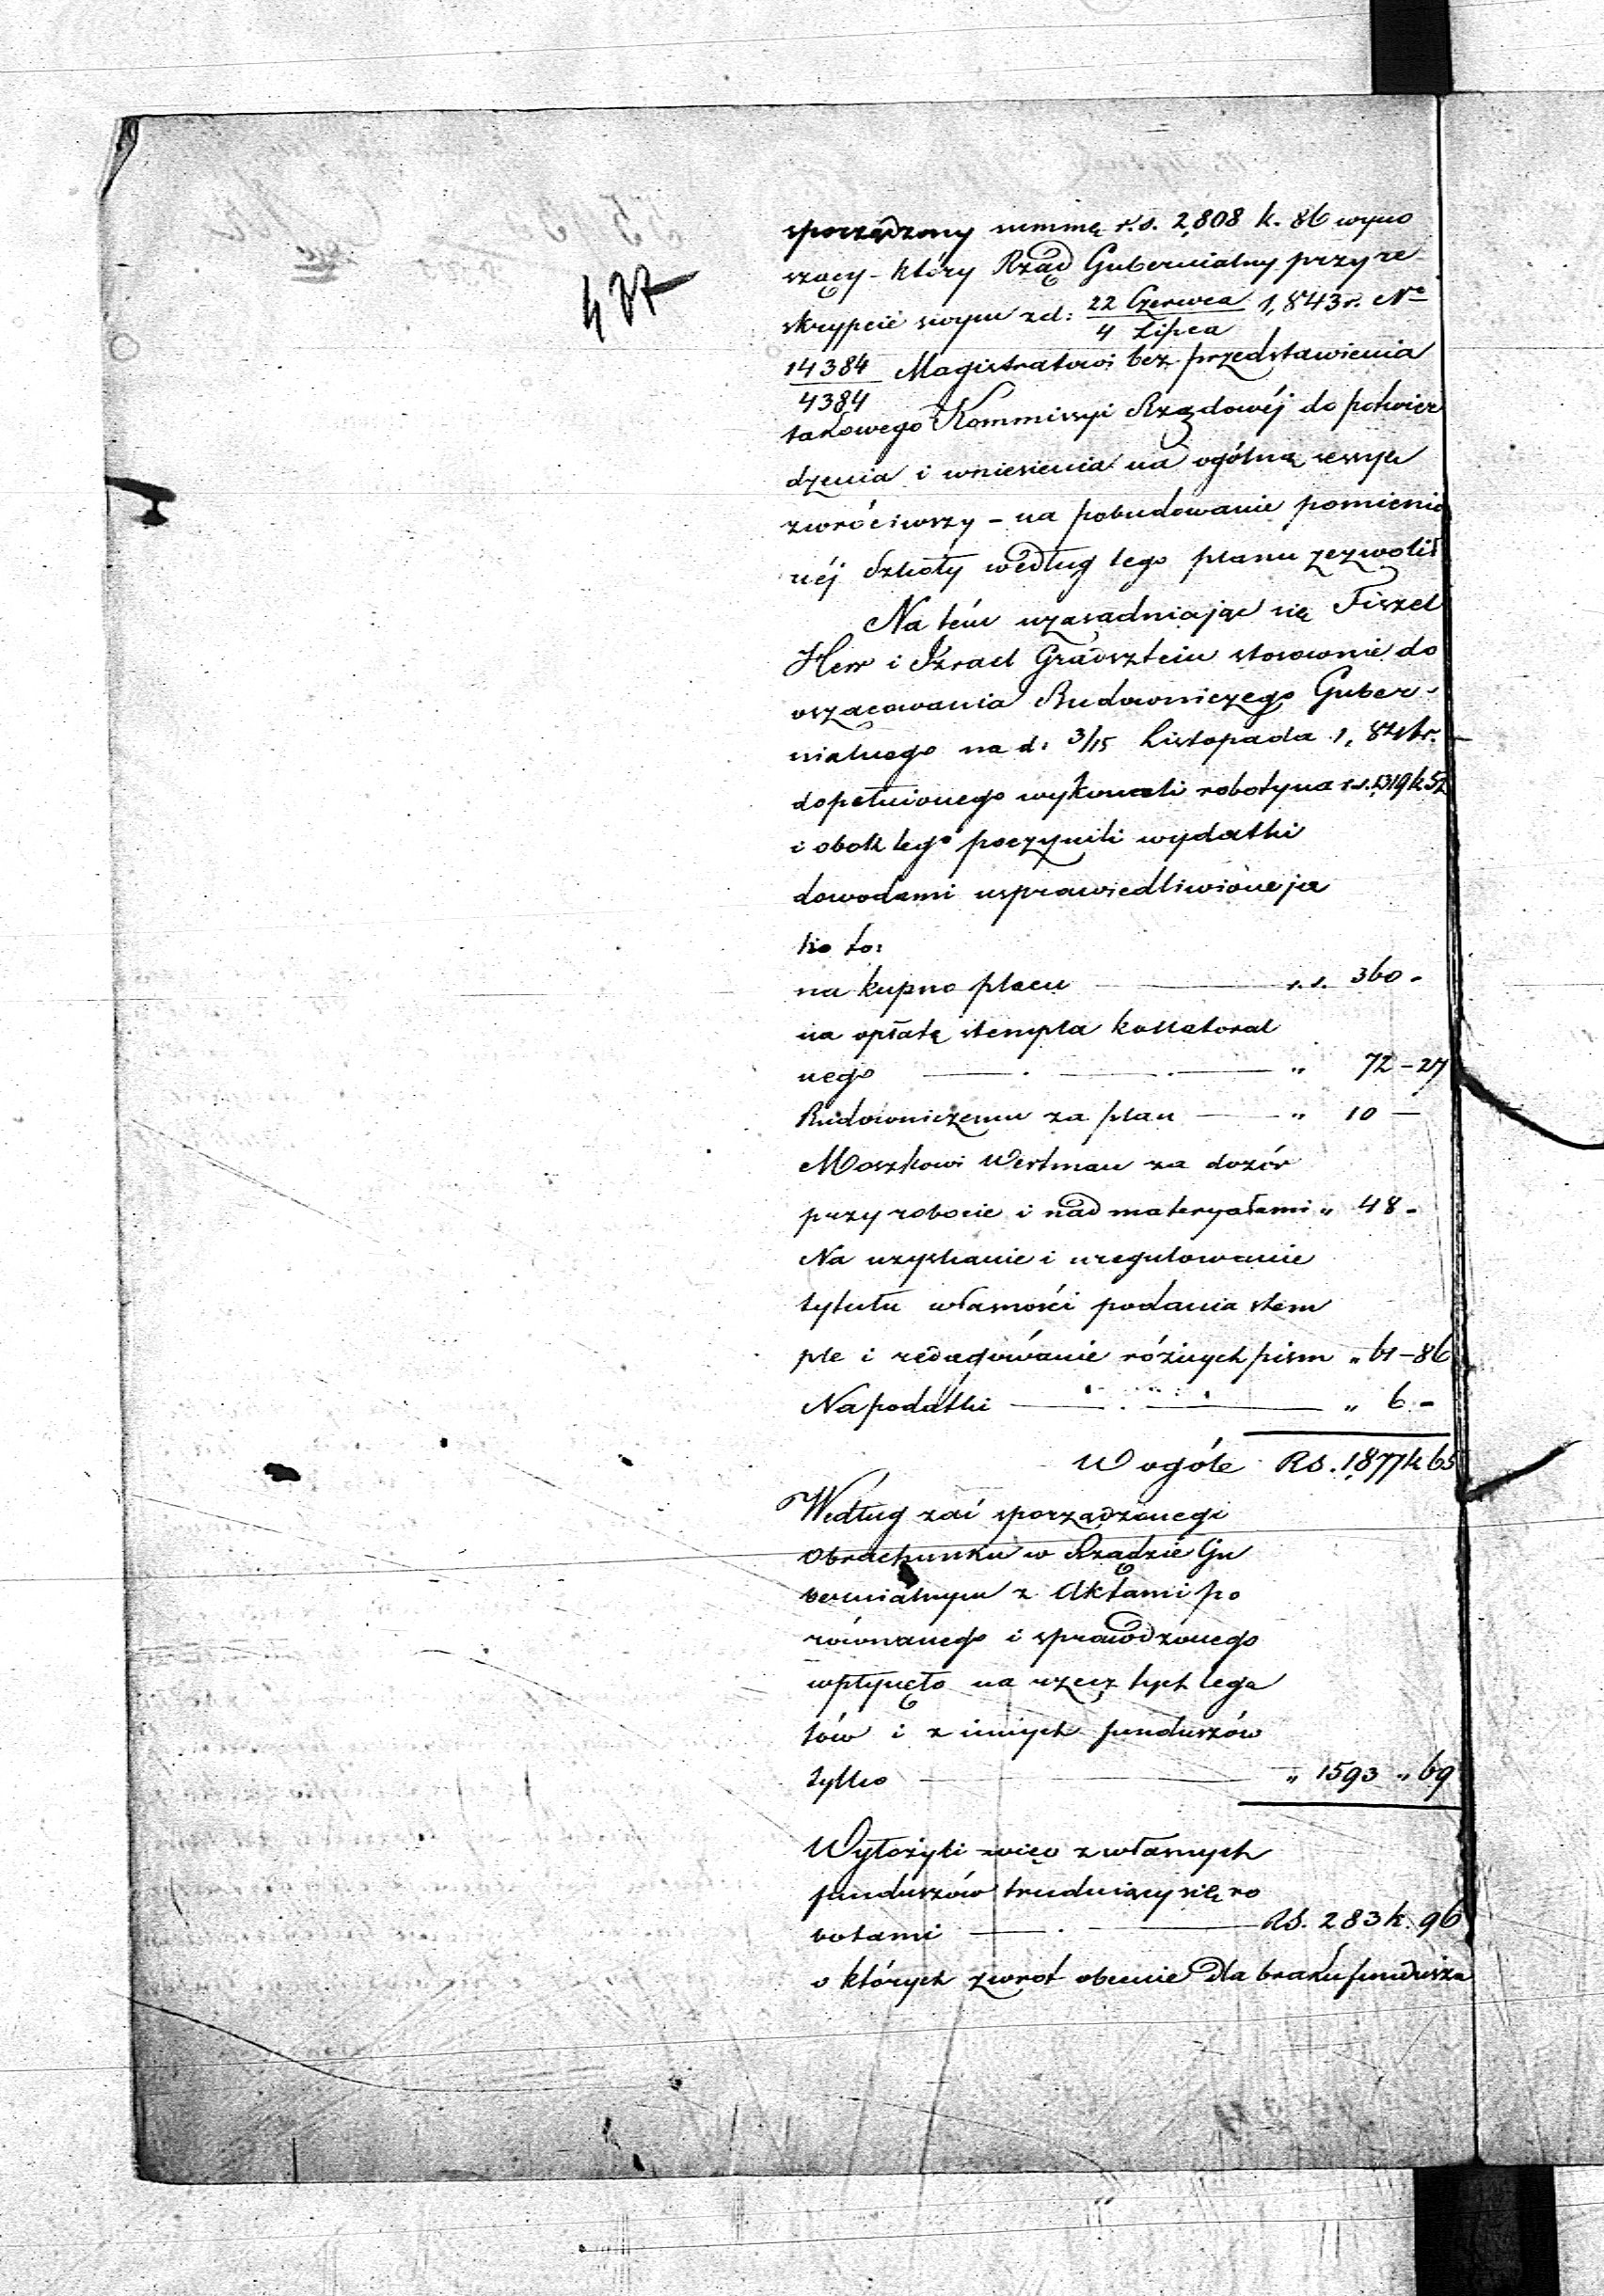 437
sporządzony summę r.s. 2,808 k. 86 wyno
szący - który Rząd Gubernialny przy re
skrypcie swym z d: 22 Czerwca / 4 Lipca 1,843 r. No
14384 / 4384 Magistratowi bez przedstawienia
takowego Kommissyi Rządowéj do potwier
dzenia i wniesienia na ogólną sessyę
zwróciwszy - na pobudowanie pomienio
néj Szkoły według tego planu zezwolił
Na tém uzasadniając się Fiszel
Herr i Izrael Gradsztein stosownie do
oszacowania Budowniczego Guber-
nialnego na d: 3/15 Listopada 1,84 r.
dopełnionego wykonali roboty na r.s. 1,319 k 52
i obok tego poczynili wydatki
dowodami usprawiedliwione ja
ko to:
na kupno placu r.s. 360 -
na opłatę stempla kollateral
nego „ 72 - 27
Budowniczemu za plan „ 10 —
Moszkowi Wertman za dozór
przy robocie i nad materyałami „ 48 -
Na uzyskanie i uregulowanie
tytułu własności podania stem
ple i redagowanie różnych pism „ 61 - 86
Na podatki „ 6 -
W ogóle Rs. 1,877 k 65
Według zaś sporządzonego
Obrachunku w Rządzie Gu
bernialnym z Aktami po
równanego i sprawdzonego
wpłynęło na rzecz tych lega
tów i z innych funduszów
tylko „ 1593 „ 69
Wyłożyli więc z własnych
funduszów trudniący się ro
botami RS. 283 k. 96
o których zwrot obecnie dla braku funduszu